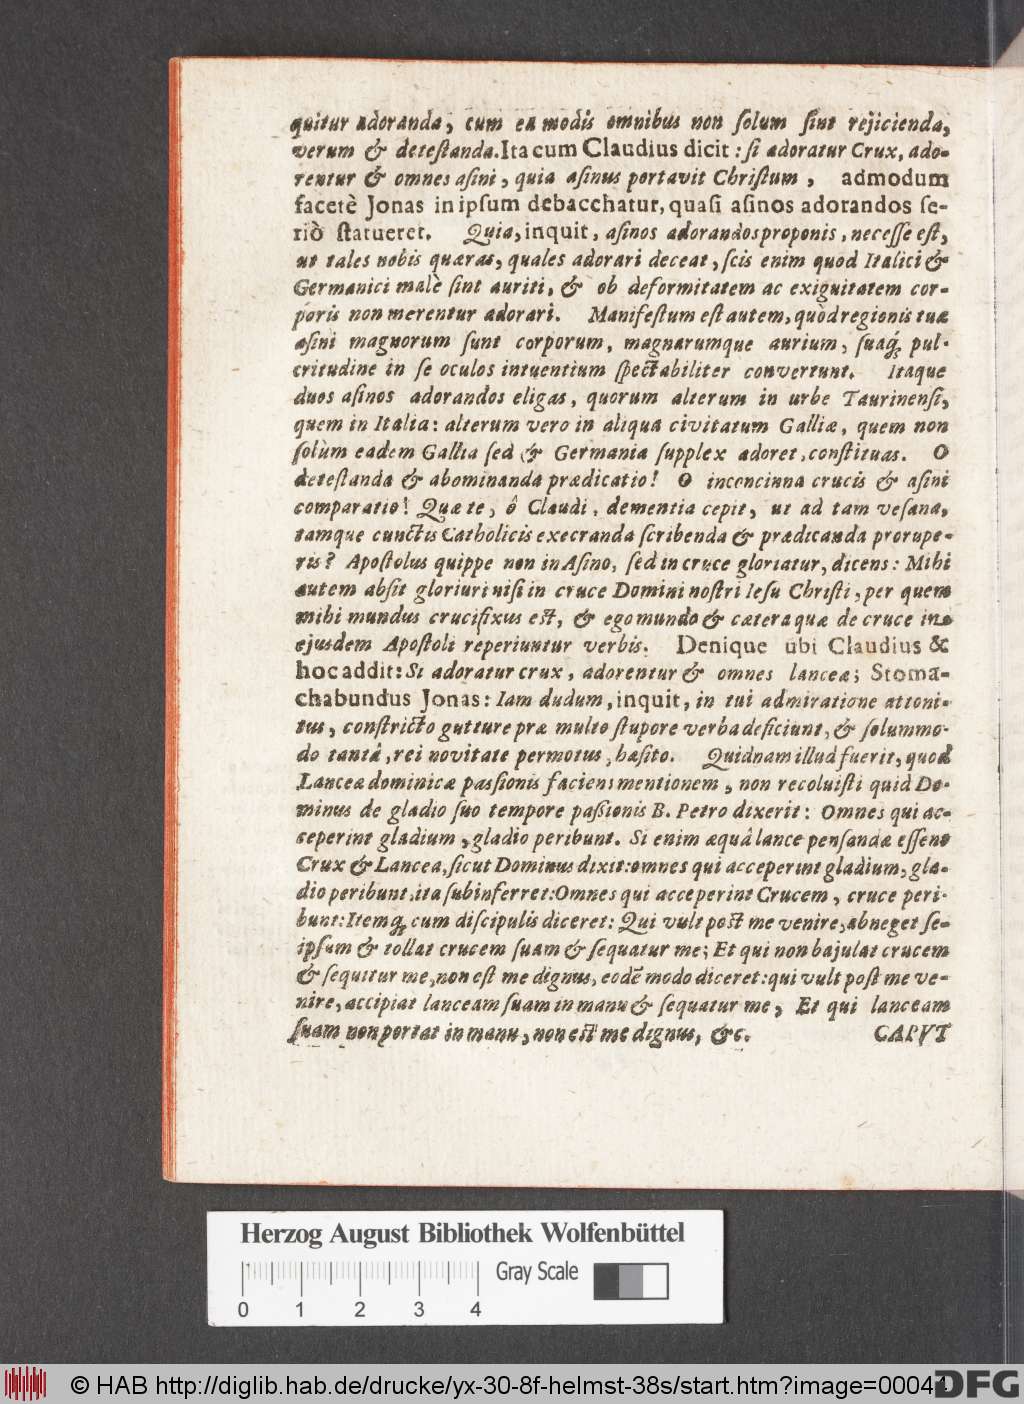 quitur adoranda, cum ea modis omnibus non ſolum ſint rejicienda,
verum & deteſtanda. Ita cum Claudius dicit: ſi adoratur Crux, ado-
rentur & omnes aſini, quia aſinus portavit Chriſtum, admodum
facetè Jonas in ipſum debacchatur, quaſi aſinos adorandos ſe-
riò ſtatueret. Quia, inquit, aſinos adorandos proponis, neceſſe eſt,
ut tales nobis quæras, quales adorari deceat, ſcis enim quod Italici &
Germanici malè ſint auriti, & ob deformitatem ac exiguitatem cor-
poris non merentur adorari. Manifeſtum eſt autem, quòd regionis tuæ
aſini magnorum ſunt corporum, magnarumque aurium, ſuaq́; pul-
critudine in ſe oculos intuentium ſpectabiliter convertunt. Itaque
duos aſinos adorandos eligas, quorum alterum in urbe Taurinenſi,
quem in Italia: alterum vero in aliqua civitatum Galliæ, quem non
ſolùm eadem Gallia ſed & Germania ſupplex adoret, conſtituas. O
deteſtanda & abominanda prædicatio! O inconcinna crucis & aſini
comparatio! Quæ te, ô Claudi, dementia cepit, ut ad tam veſana,
tamque cunctis Catholicis execranda ſcribenda & prædicanda prorupe-
ris? Apoſtolus quippe non in Aſino, ſed in cruce gloriatur, dicens: Mihi
autem abſit gloriari niſi in cruce Domini noſtri Ieſu Chriſti, per quem
mihi mundus crucifixus eſt, & ego mundo & cætera quæ de cruce in
ejusdem Apoſtoli reperiuntur verbis. Denique ubi Claudius &
hoc addit: Si adoratur crux, adorentur & omnes lanceæ; Stoma-
chabundus Jonas: Iam dudum, inquit, in tui admiratione attoni-
tus, conſtricto gutture præ multo ſtupore verba deficiunt, & ſolummo-
do tantâ, rei novitate permotus, hæſito. Quidnam illud fuerit, quod
Lanceæ dominicæ paſſionis faciens mentionem, non recoluiſti quid Do-
minus de gladio ſuo tempore paſſionis B. Petro dixerit: Omnes qui ac-
ceperint gladium, gladio peribunt. Si enim æquâ lance penſandæ eſſent
Crux & Lancea, ſicut Dominus dixit: omnes qui acceperint gladium, gla-
dio peribunt, ita ſubinferret: Omnes qui acceperint Crucem, cruce peri-
bunt: Itemq́; cum diſcipulis diceret: Qui vult poſt me venire, abneget ſe-
ipſum & tollat crucem ſuam & ſequatur me; Et qui non bajulat crucem
& ſequitur me, non eſt me dignus, eodē modo diceret: qui vult poſt me ve-
nire, accipiat lanceam ſuam in manu & ſequatur me, Et qui lanceam
ſuam non portat in manu, non eſt me dignus, &c. CAPVT
Herzog August Bibliothek Wolfenbüttel
Gray Scale
0 1 2 3 4
© HAB http://diglib.hab.de/drucke/yx-30-8f-helmst-38s/start.htm?image=00044
DFG